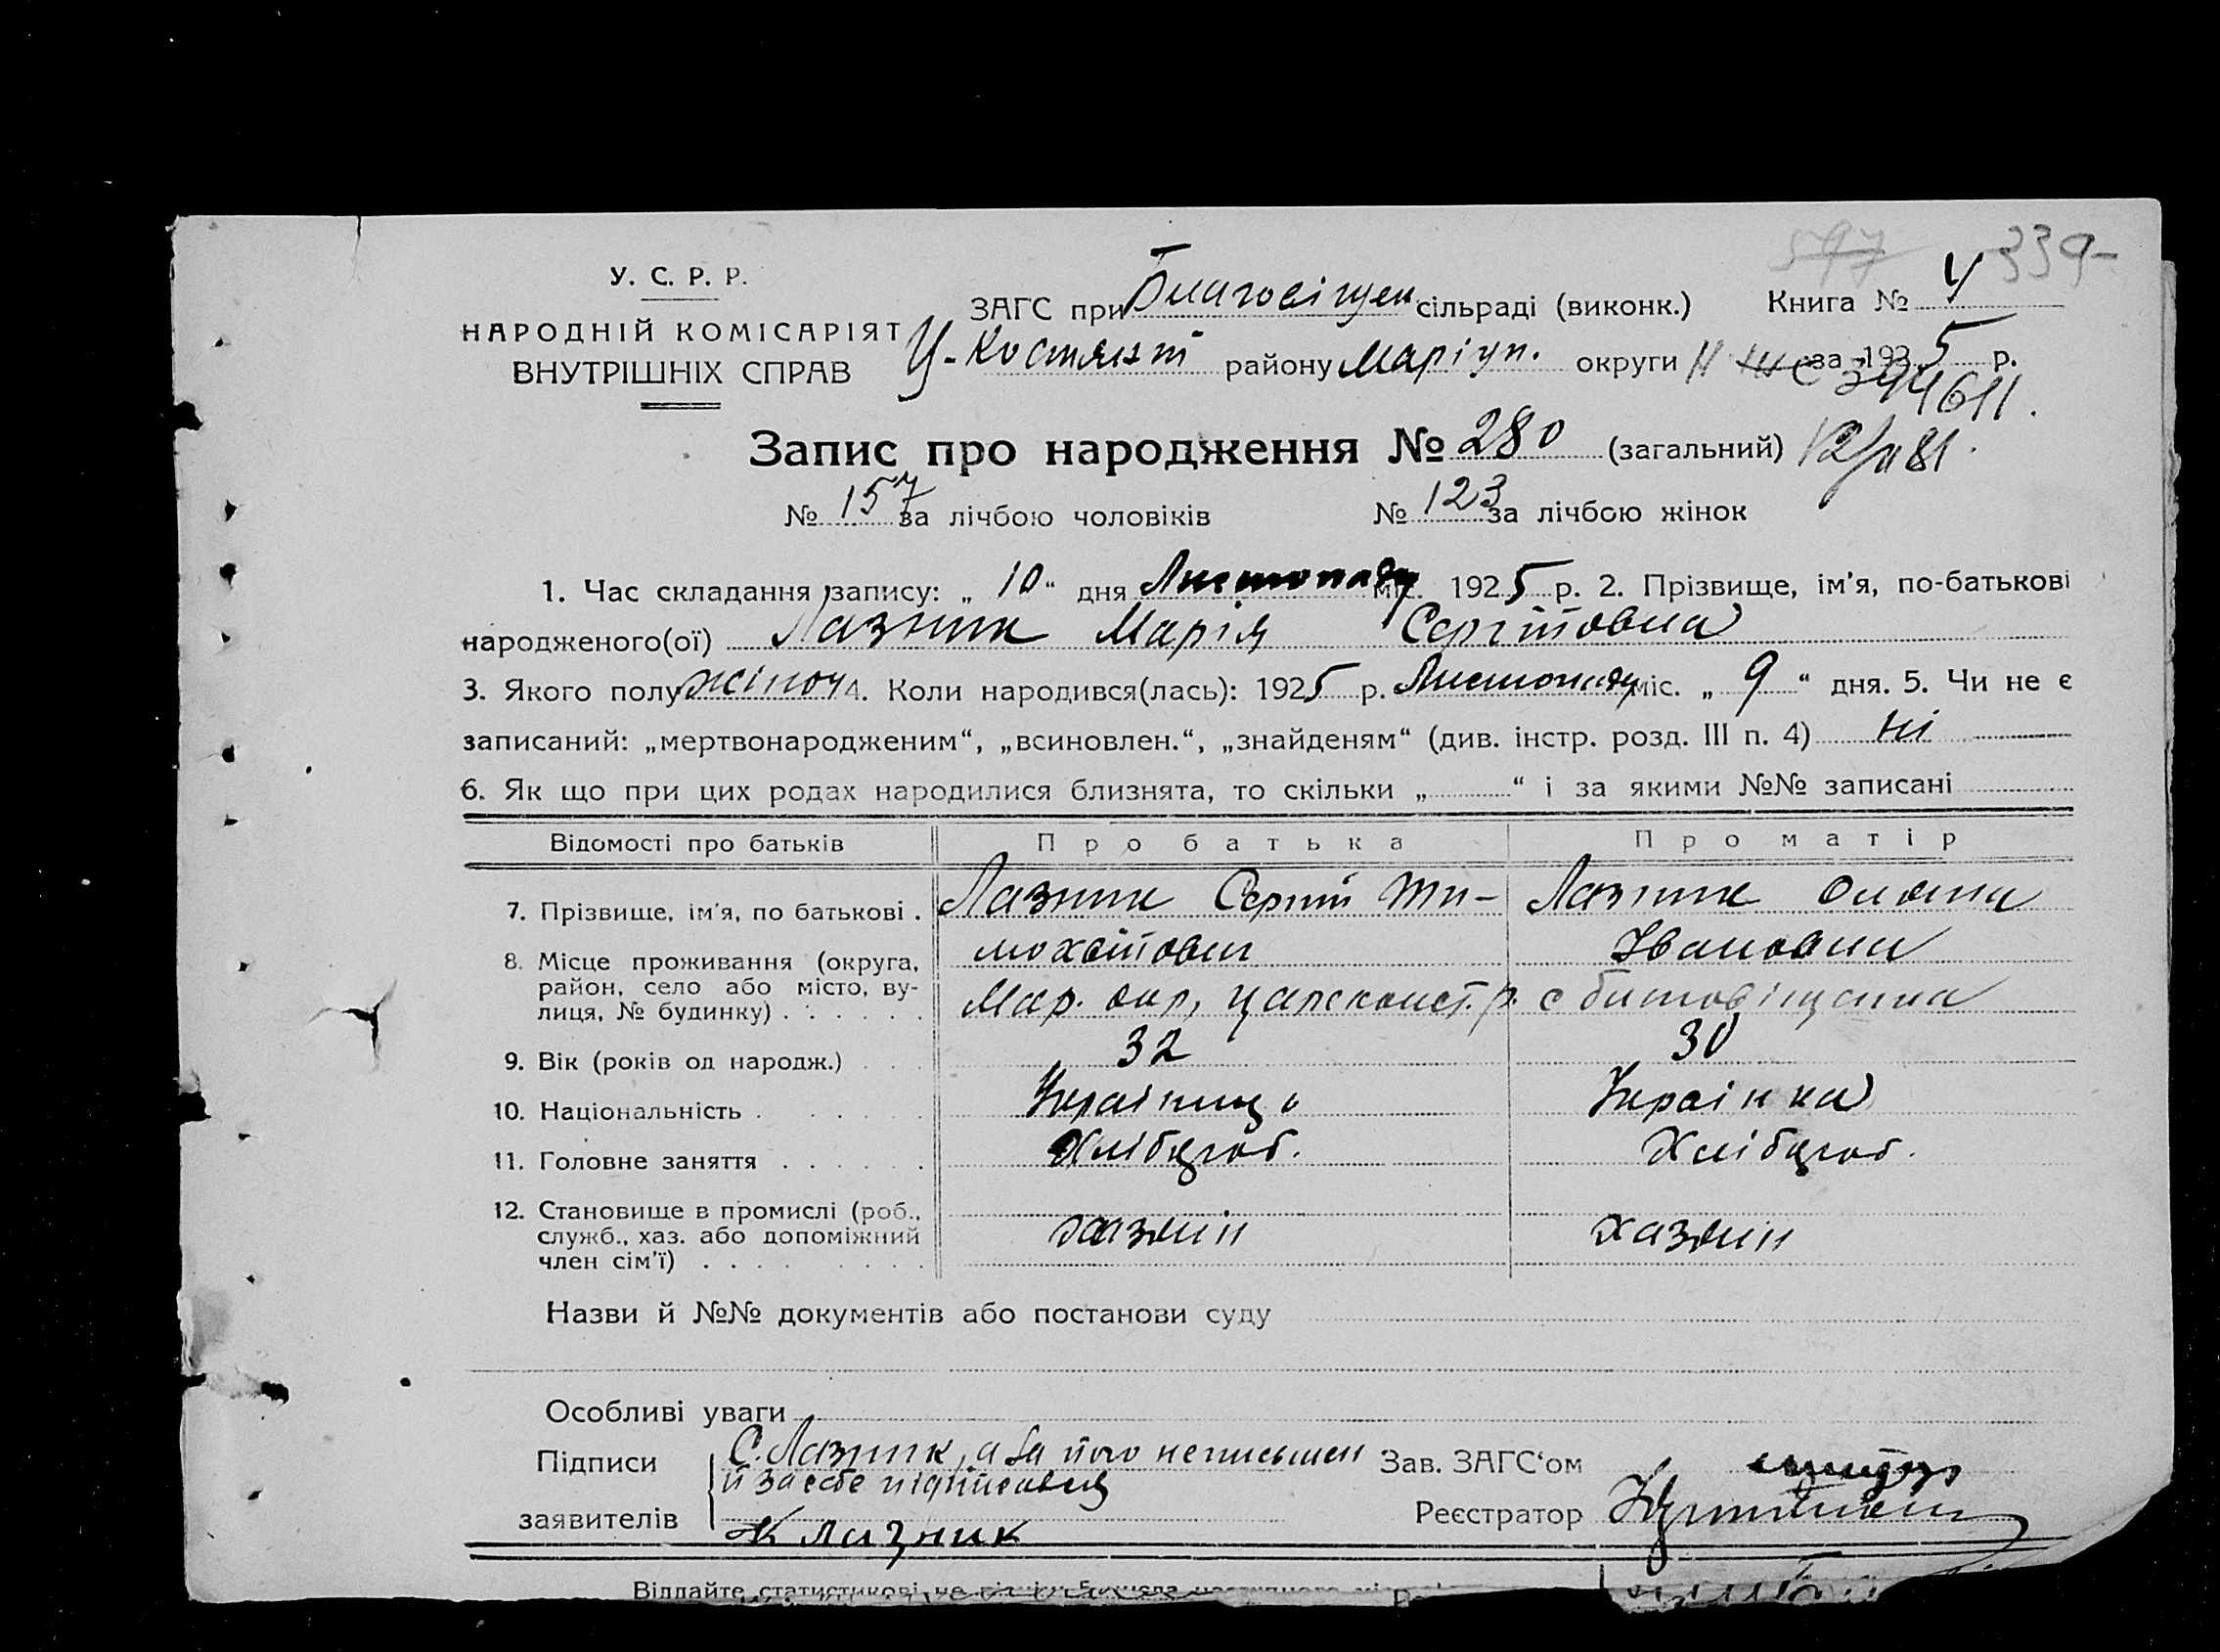 597 339-
У. С. Р. Р.
НАРОДНІЙ КОМІСАРІЯТ
ВНУТРІШНІХ СПРАВ
ЗАГС при Благовіщен сільраді (виконк.) Книга № 4
Ц-Костянт району Маріуп. округи за 192 5 р.
394611.
Запис про народження № 280 (загальний)
№ 157 за лічбою чоловіків № 123 за лічбою жінок
1. Час складання запису: „ 10 “ дня Листопаду міс. 1925 р. 2. Прізвище, ім'я, по-батькові
народженого(ої) Лазник Марія Сергійовна
3. Якого полу жіноч 4. Коли народився(лась): 1925 р. Листопаду міс. „ 9 “ дня. 5. Чи не є
записаний: „мертвонародженим“, „всиновлен.“, „знайденям“ (див. інстр. розд. III п. 4) ні
6. Як що при цих родах народилися близнята, то скільки „ “ і за якими №№ записані
Відомості про батьків Про батька Про матір
7. Прізвище, ім'я, по батькові . Лазник Сергій Ти- Лазник Олена
мохвійович Івановна
8. Місце проживання (округа,
район, село або місто, ву-
лиця, № будинку) . . . . . . Мар. окр, царсконст. р. с
9. Вік (років од народж.) . . . 32 30
10. Національність . . . . . . Українць Українка
11. Головне заняття . . . . . . Хлібороб. Хлібороб.
12. Становище в промислі (роб.,
служб., хаз. або допоміжний
член сім'ї) . . . . . . . . . хазяін хазяін
Назви й №№ документів або постанови суду
Особливі уваги
Підписи С. Лазник, а за його неписьмен Зав. ЗАГС'ом
й засебе підписавсь
заявителів Лазник Реєстратор
Віддайте статистикові не пізніш